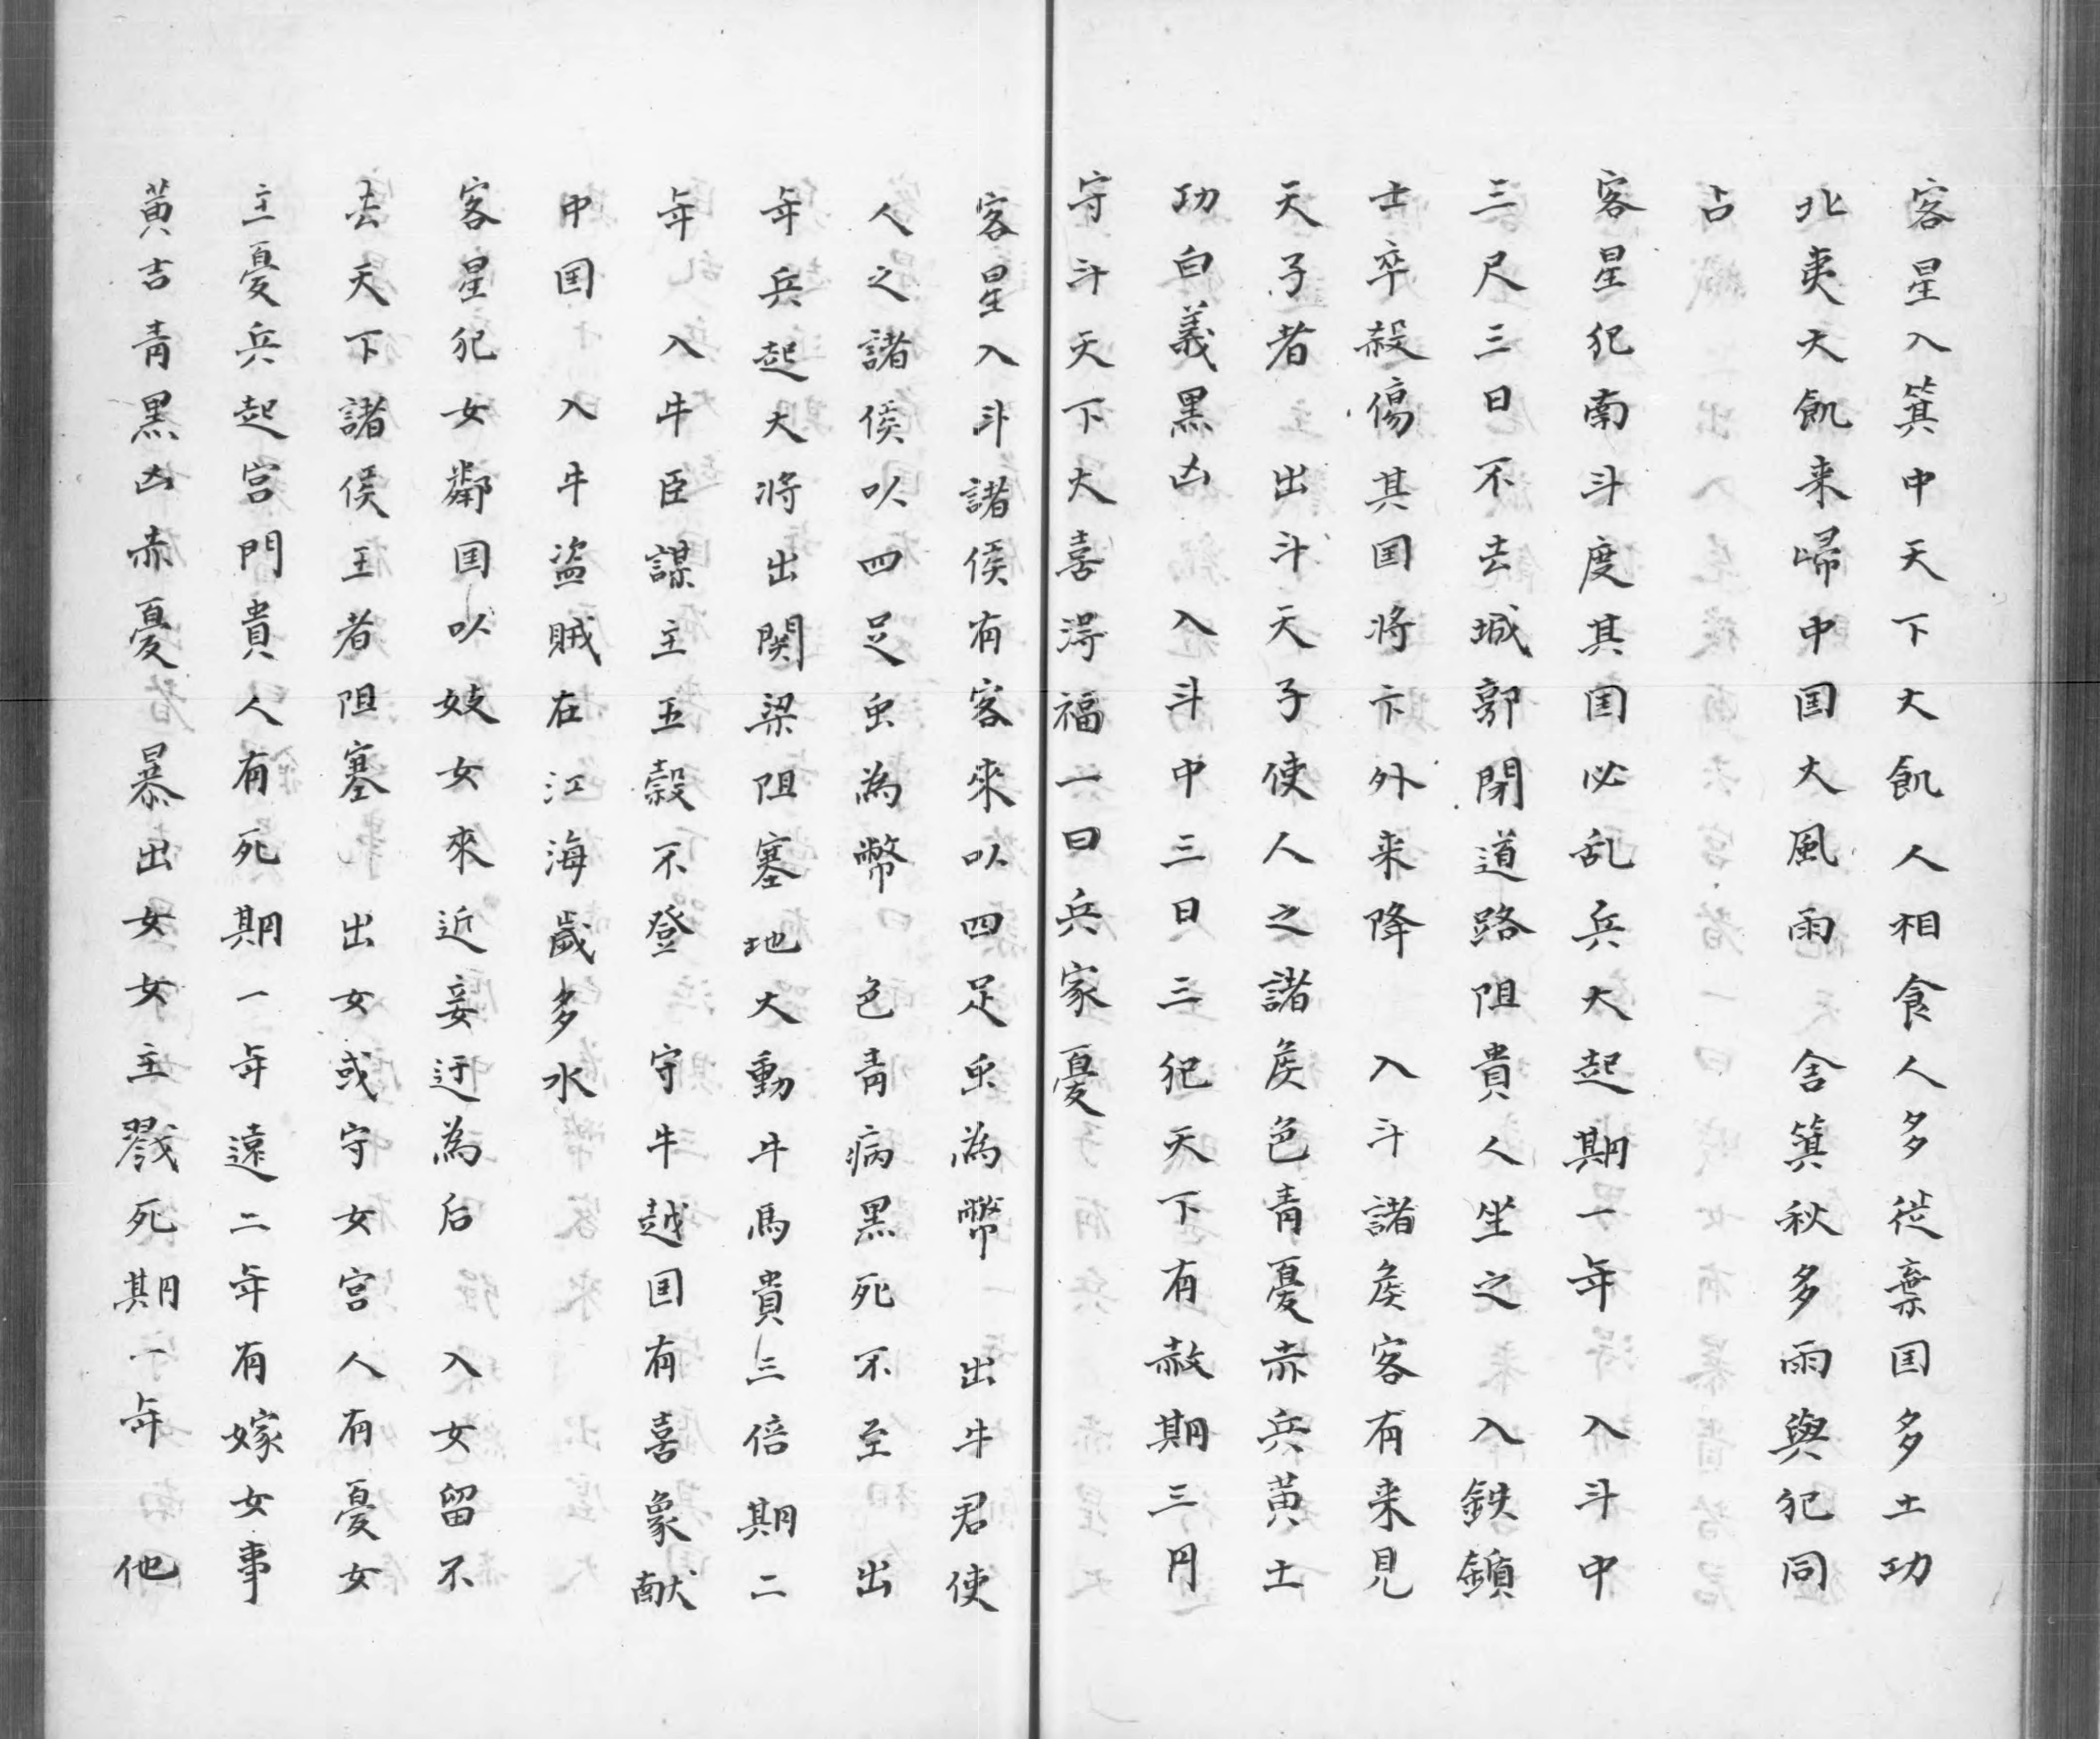 客星入箕中天下大飢人相食人多徙棄国多土功
北夷大飢来帰中国大風雨　舍箕秋多雨與犯同
占
客星犯南斗度其国必乱兵大起期一年　入斗中
三尺三日不去城郭閉道路阻貴人坐之　入鉄鎖
士卒殺傷其国将卞外来降　入斗諸矦客有来見
天子者　出斗天子使人之諸矦色青憂赤兵黄土
功白義黒凶　入斗中三日三犯天下有赦期三円
守斗天下大喜淂福一曰兵家憂
客星入斗諸侯有客來以四足虫為幣　出牛君使
人之諸侯以四足虫為幣　色青病黒死不至　出
年兵起大将出関梁阻塞地大動牛馬貴三倍期二
年　入牛臣謀主五穀不登　守牛越国有喜象献
中国　入牛盗賊在江海歲多水
客星犯女鄰国以妓女來近妾迂為后　入女留不
去天下諸侯王者阻塞　出女或守女宮人有憂女
主憂兵起宮門貴人有死期一年遠二年有嫁女事
黄吉青黒凶赤憂　暴出女女主戮死期一年　他